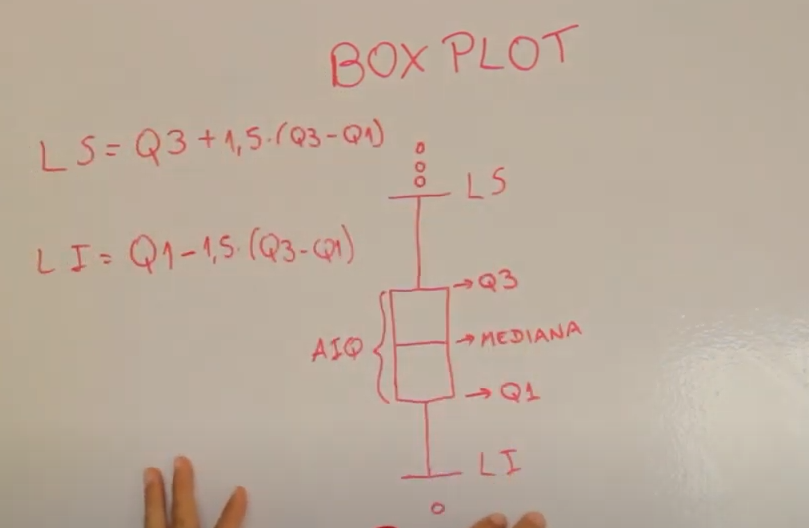 BOX PLOT
LS = Q3 + 1,5.(Q3-Q1)
LS
LI = Q1-1,5.(Q3-Q1)
→Q3
AIQ
→MEDIANA
→Q1
LI